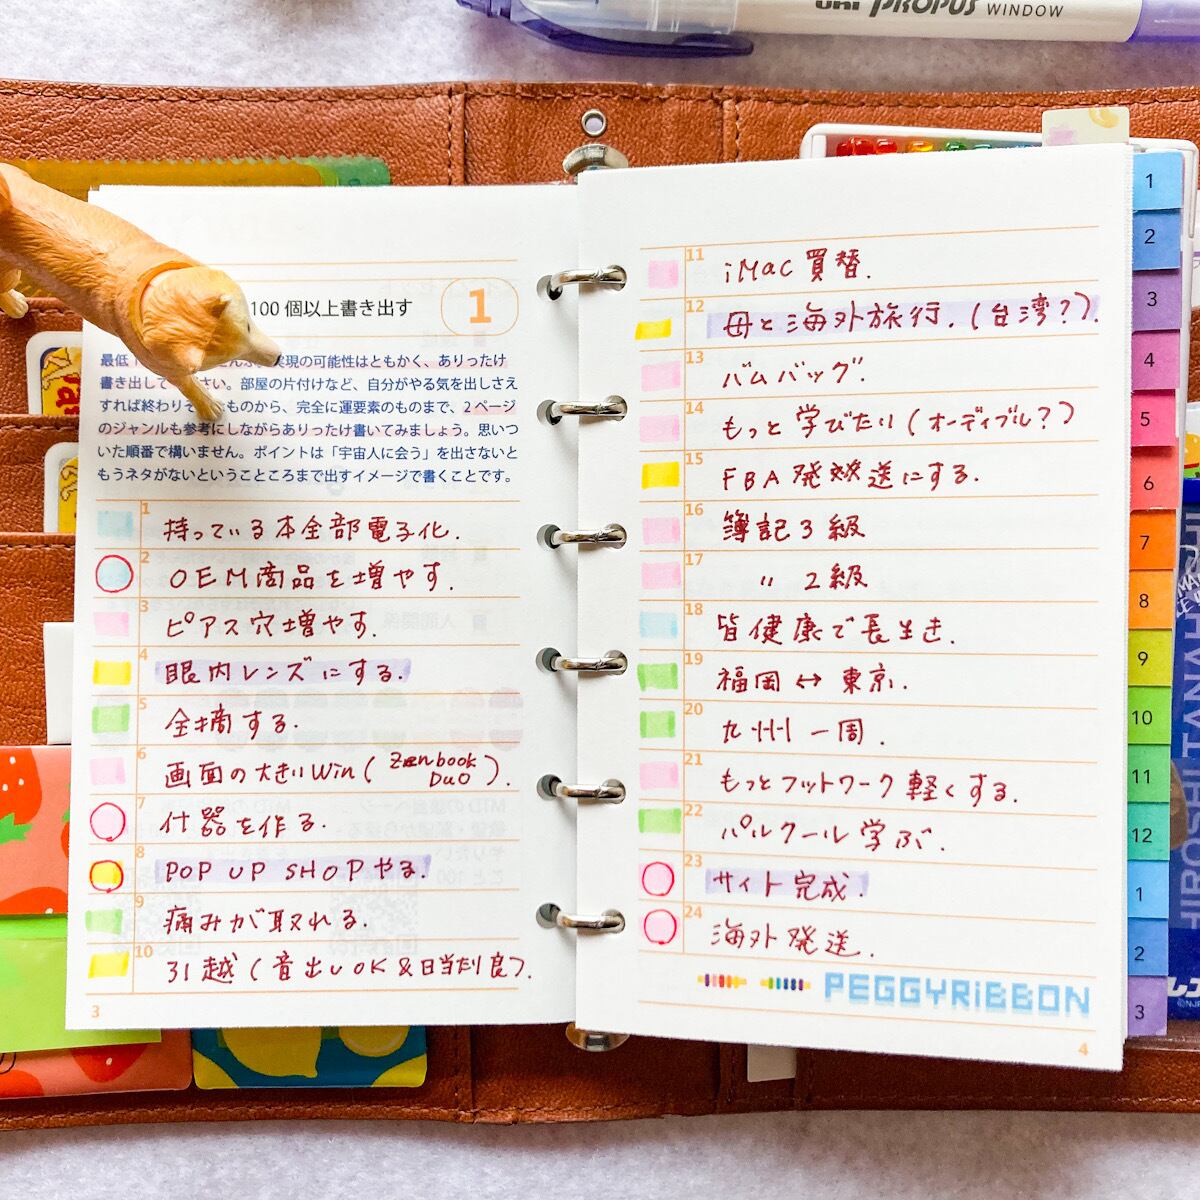 uni PROPUS WINDOW
100個以上書き出す
1
最低 実現の可能性はともかく、ありったけ
書き出して さい。部屋の片付けなど、自分がやる気を出しさえ
すれば終わりそ ものから、完全に運要素のものまで、2ページ
のジャンルも参考にしながらありったけ書いてみましょう。思いつ
いた順番で構いません。ポイントは「宇宙人に会う」を出さないと
もうネタがないということころまで出すイメージで書くことです。
1 持っている本全部電子化.
2 OEM商品を増やす.
3 ピアス穴増やす.
4 眼内レンズにする.
5 全摘する.
6 画面の大きいWin (Zenbook DUO).
7 什器を作る.
8 POP UP SHOPやる.
9 痛みが取れる.
10 引越(音出しOK&日当たり良).
3
11 iMac買替.
12 母と海外旅行.(台湾?).
13 バムバッグ.
14 もっと学びたい(オーディブル?)
15 FBA発送にする.
16 簿記3級
17 〃 2級
18 皆健康で長生き.
19 福岡↔東京.
20 九州一周.
21 もっとフットワーク軽くする.
22 パルクール学ぶ.
23 サイト完成.
24 海外発送.
PEGGYRiBBON
4
1
2
3
4
5
6
7
8
9
10
11
12
1
2
3